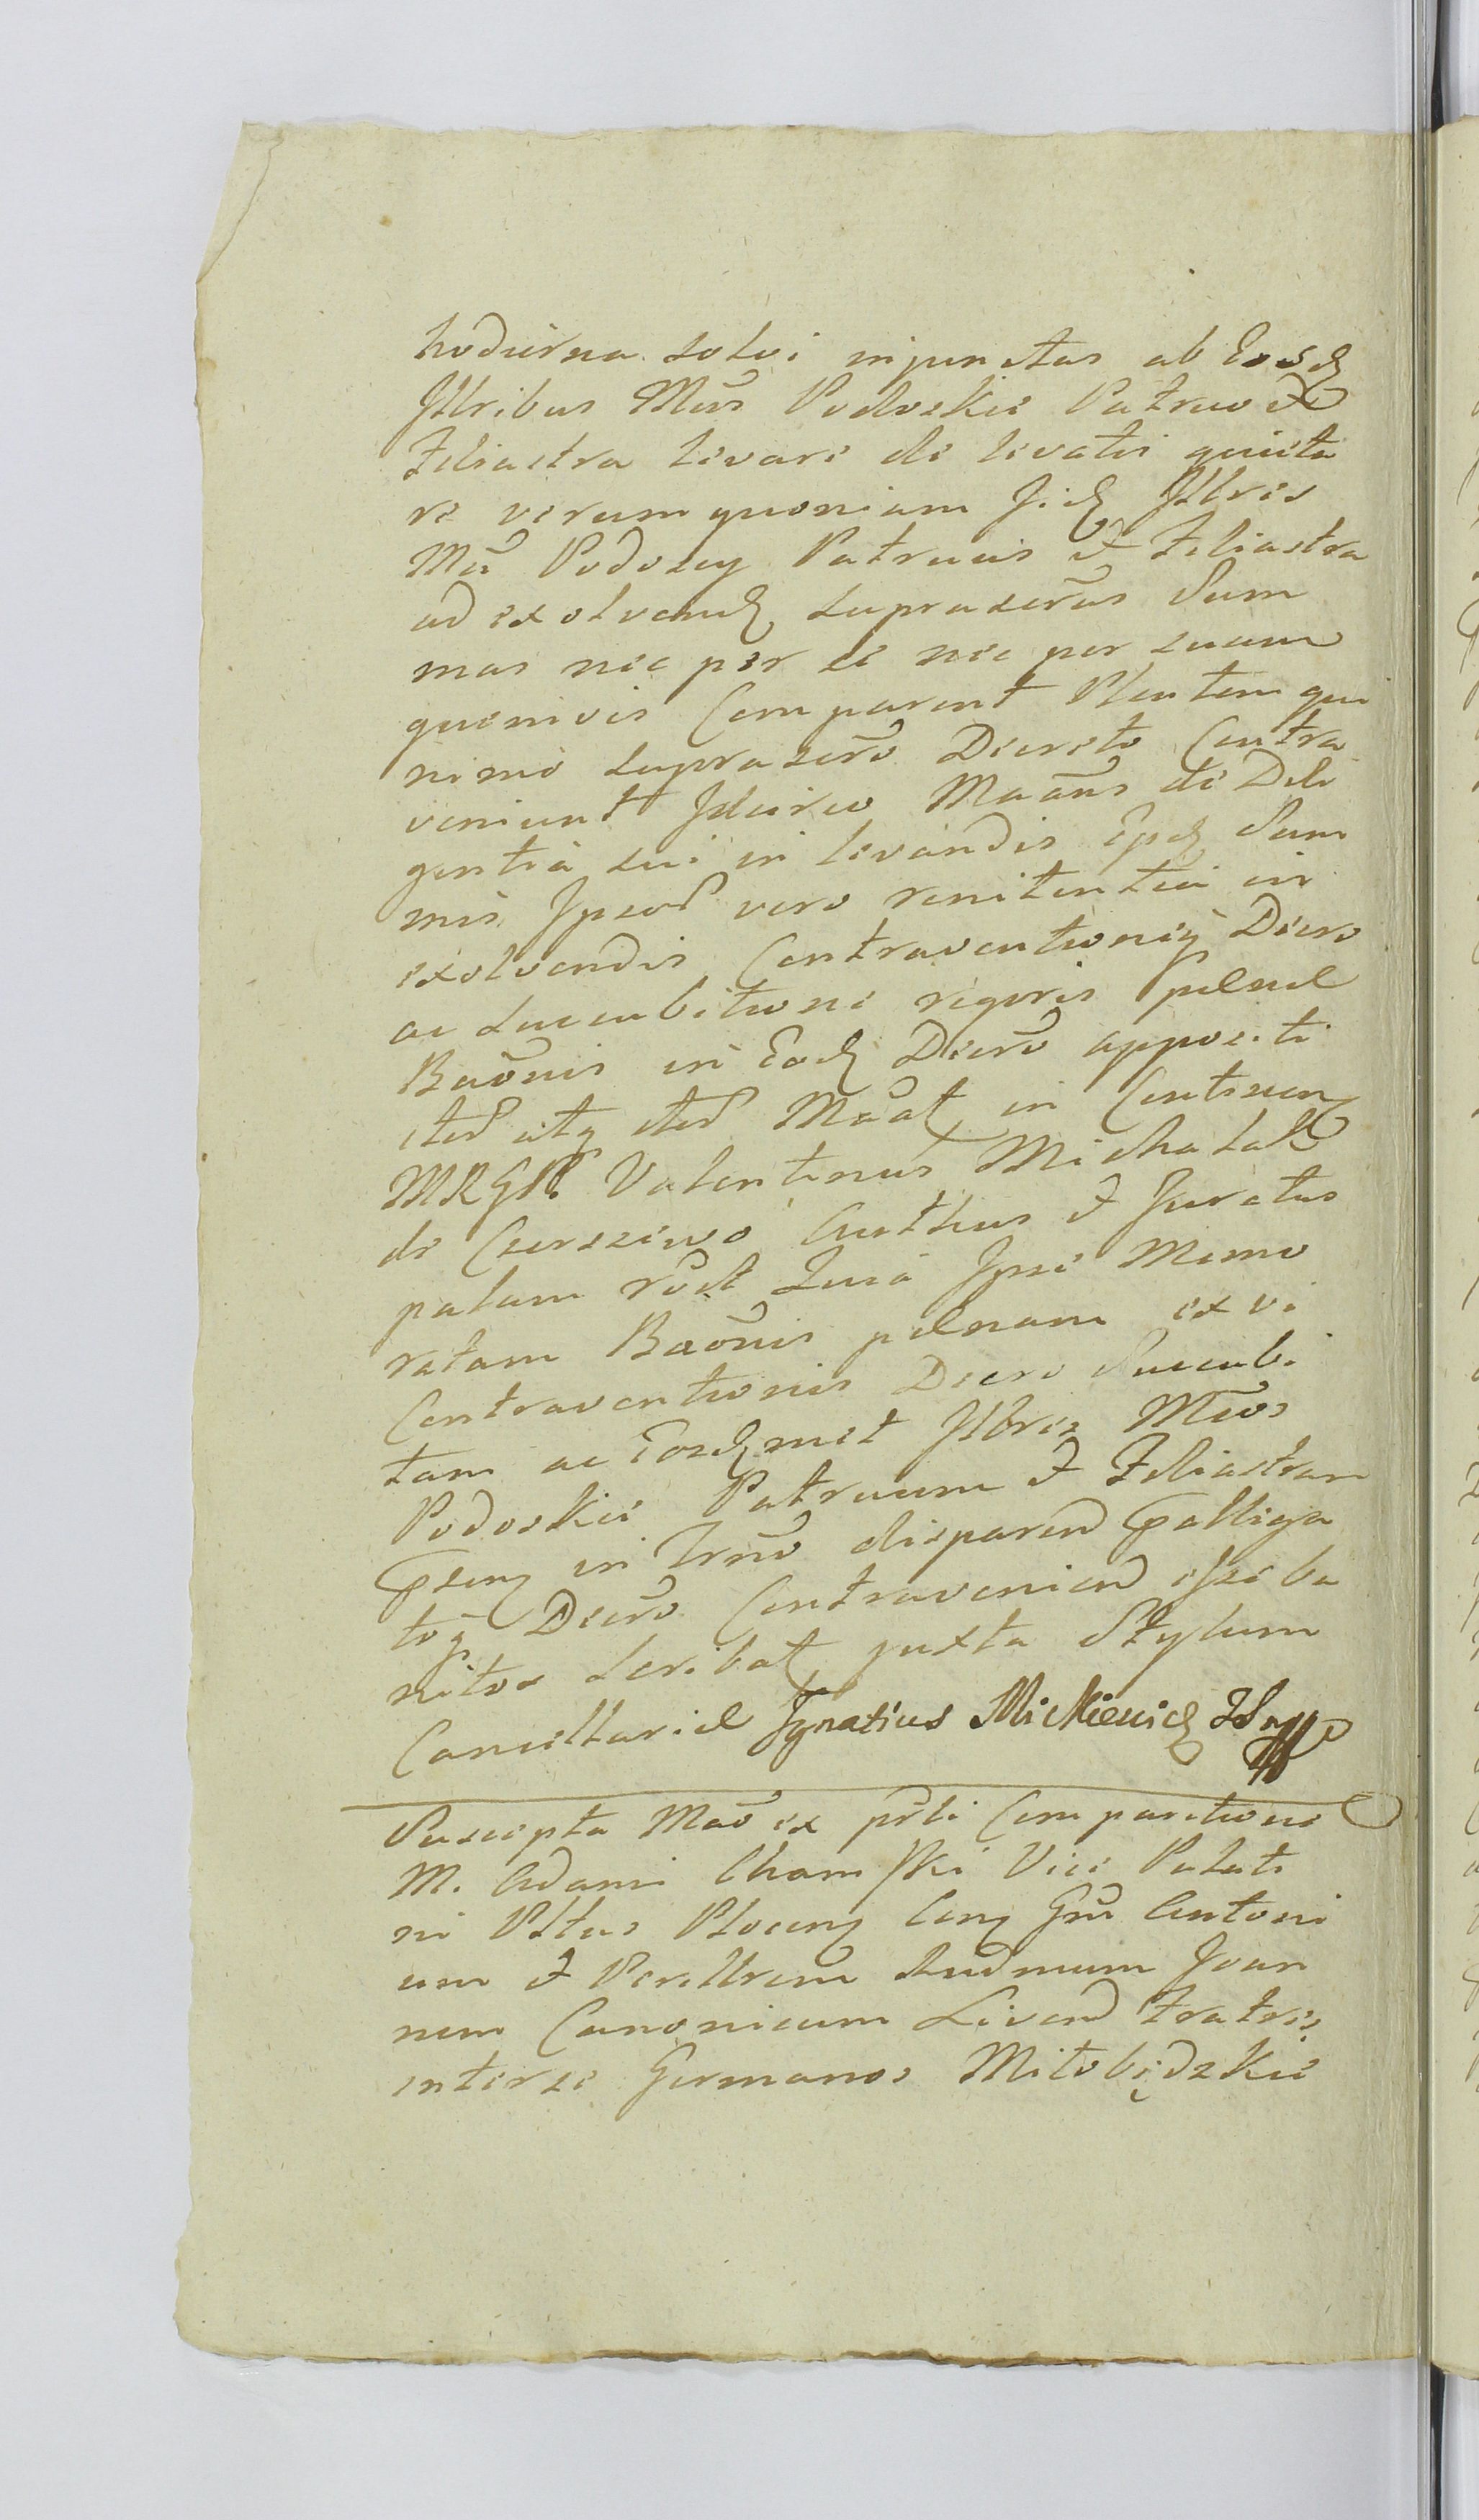 hodierna solvi injunctas ab Eosd
Illribus Mcis Podoskie Patruo et
Filiastra levare de levatis quieta
re verum quoniam Iid Illres
Mci Podoscy Patruus et Filiastra
ad exolvend suprascras Sum
mas nec per se nec per suum
quemvis Comparent Plentem qui
nimo suprascro Decreto Contra
veniunt Idcirco Maans de Dili
gentia sui in levandis Epd Sum
mis Ipsor vero renitentia in
exolvendis Contraventioneq Decro
ac succubitione rigoris pœnæ
Baonis in Eod Decro appositi
iter atq iter Maat in Continen
MRGR Valentinus Michalak
de Czerszewo Authus et Juratus
palam Quia Ipse Memo
ratam Baonis pœnam ex vi
Contraventionis Decro Succubi
tam ac Eosdmet Illres Mcos
Podoskie Patruum et Filiastram
in Trno disparend
toq Decro Contravenien esse ba
nitos scribat juxta Stylum
Cancellariæ Ignatius Mickiewicz
Suscepta Mao ex prli Comparitione
M. Adami Chamski Vice Palati
ni Pltus Plocen Cen Gm Antoni
um et Perillrem Rudmum Joan
nem Canonicum Livend fratres
interse Germanos Miłobędzkie